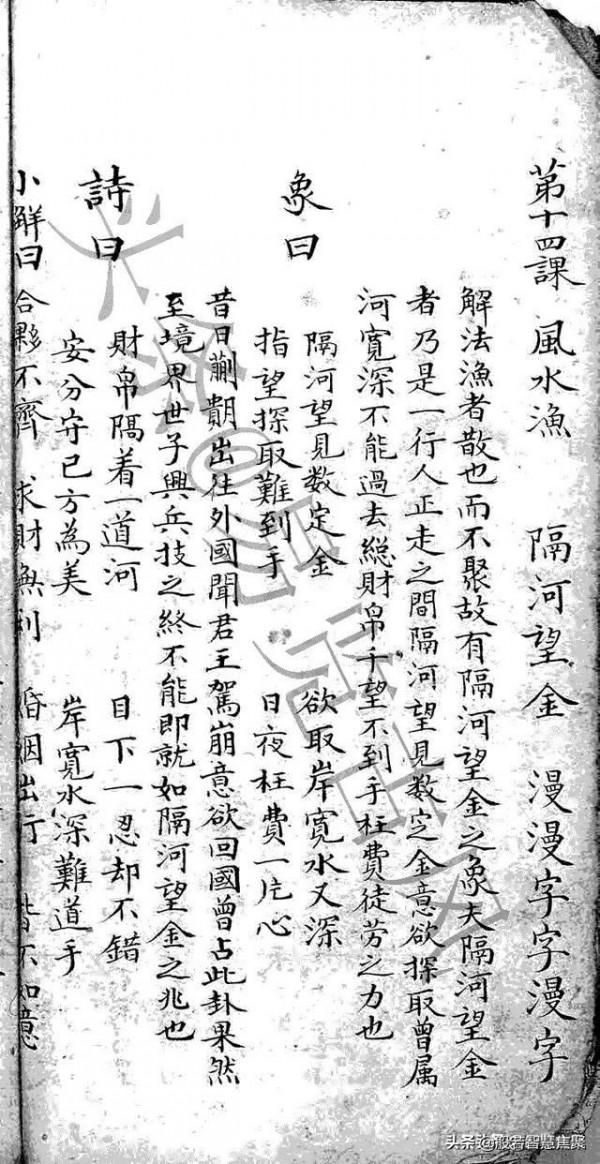 第十四課 風水漁 隔河望金 漫漫字字漫字
解法漁者散也而不聚故有隔河望金之象夫隔河望金
者乃是一行人正走之間隔河望見数定金意欲探取曾属
河寬深不能過去総財帛千望不到手枉費徒劳之力也
象曰
隔河望見数定金 欲取岸寬水又深
指望探取難到手 日夜枉費一片心
昔日蒯聵出往外國聞君王駕崩意欲回國曾占此卦果然
至境界世子興兵技之終不能即就如隔河望金之兆也
詩曰
財帛隔着一道河 目下一忍却不錯
安分守已方為美 岸寬水深難道手
小觧曰 合夥不齊 求財無利 婚姻出行 皆不如意
头条@
头条@般若智慧焦聚